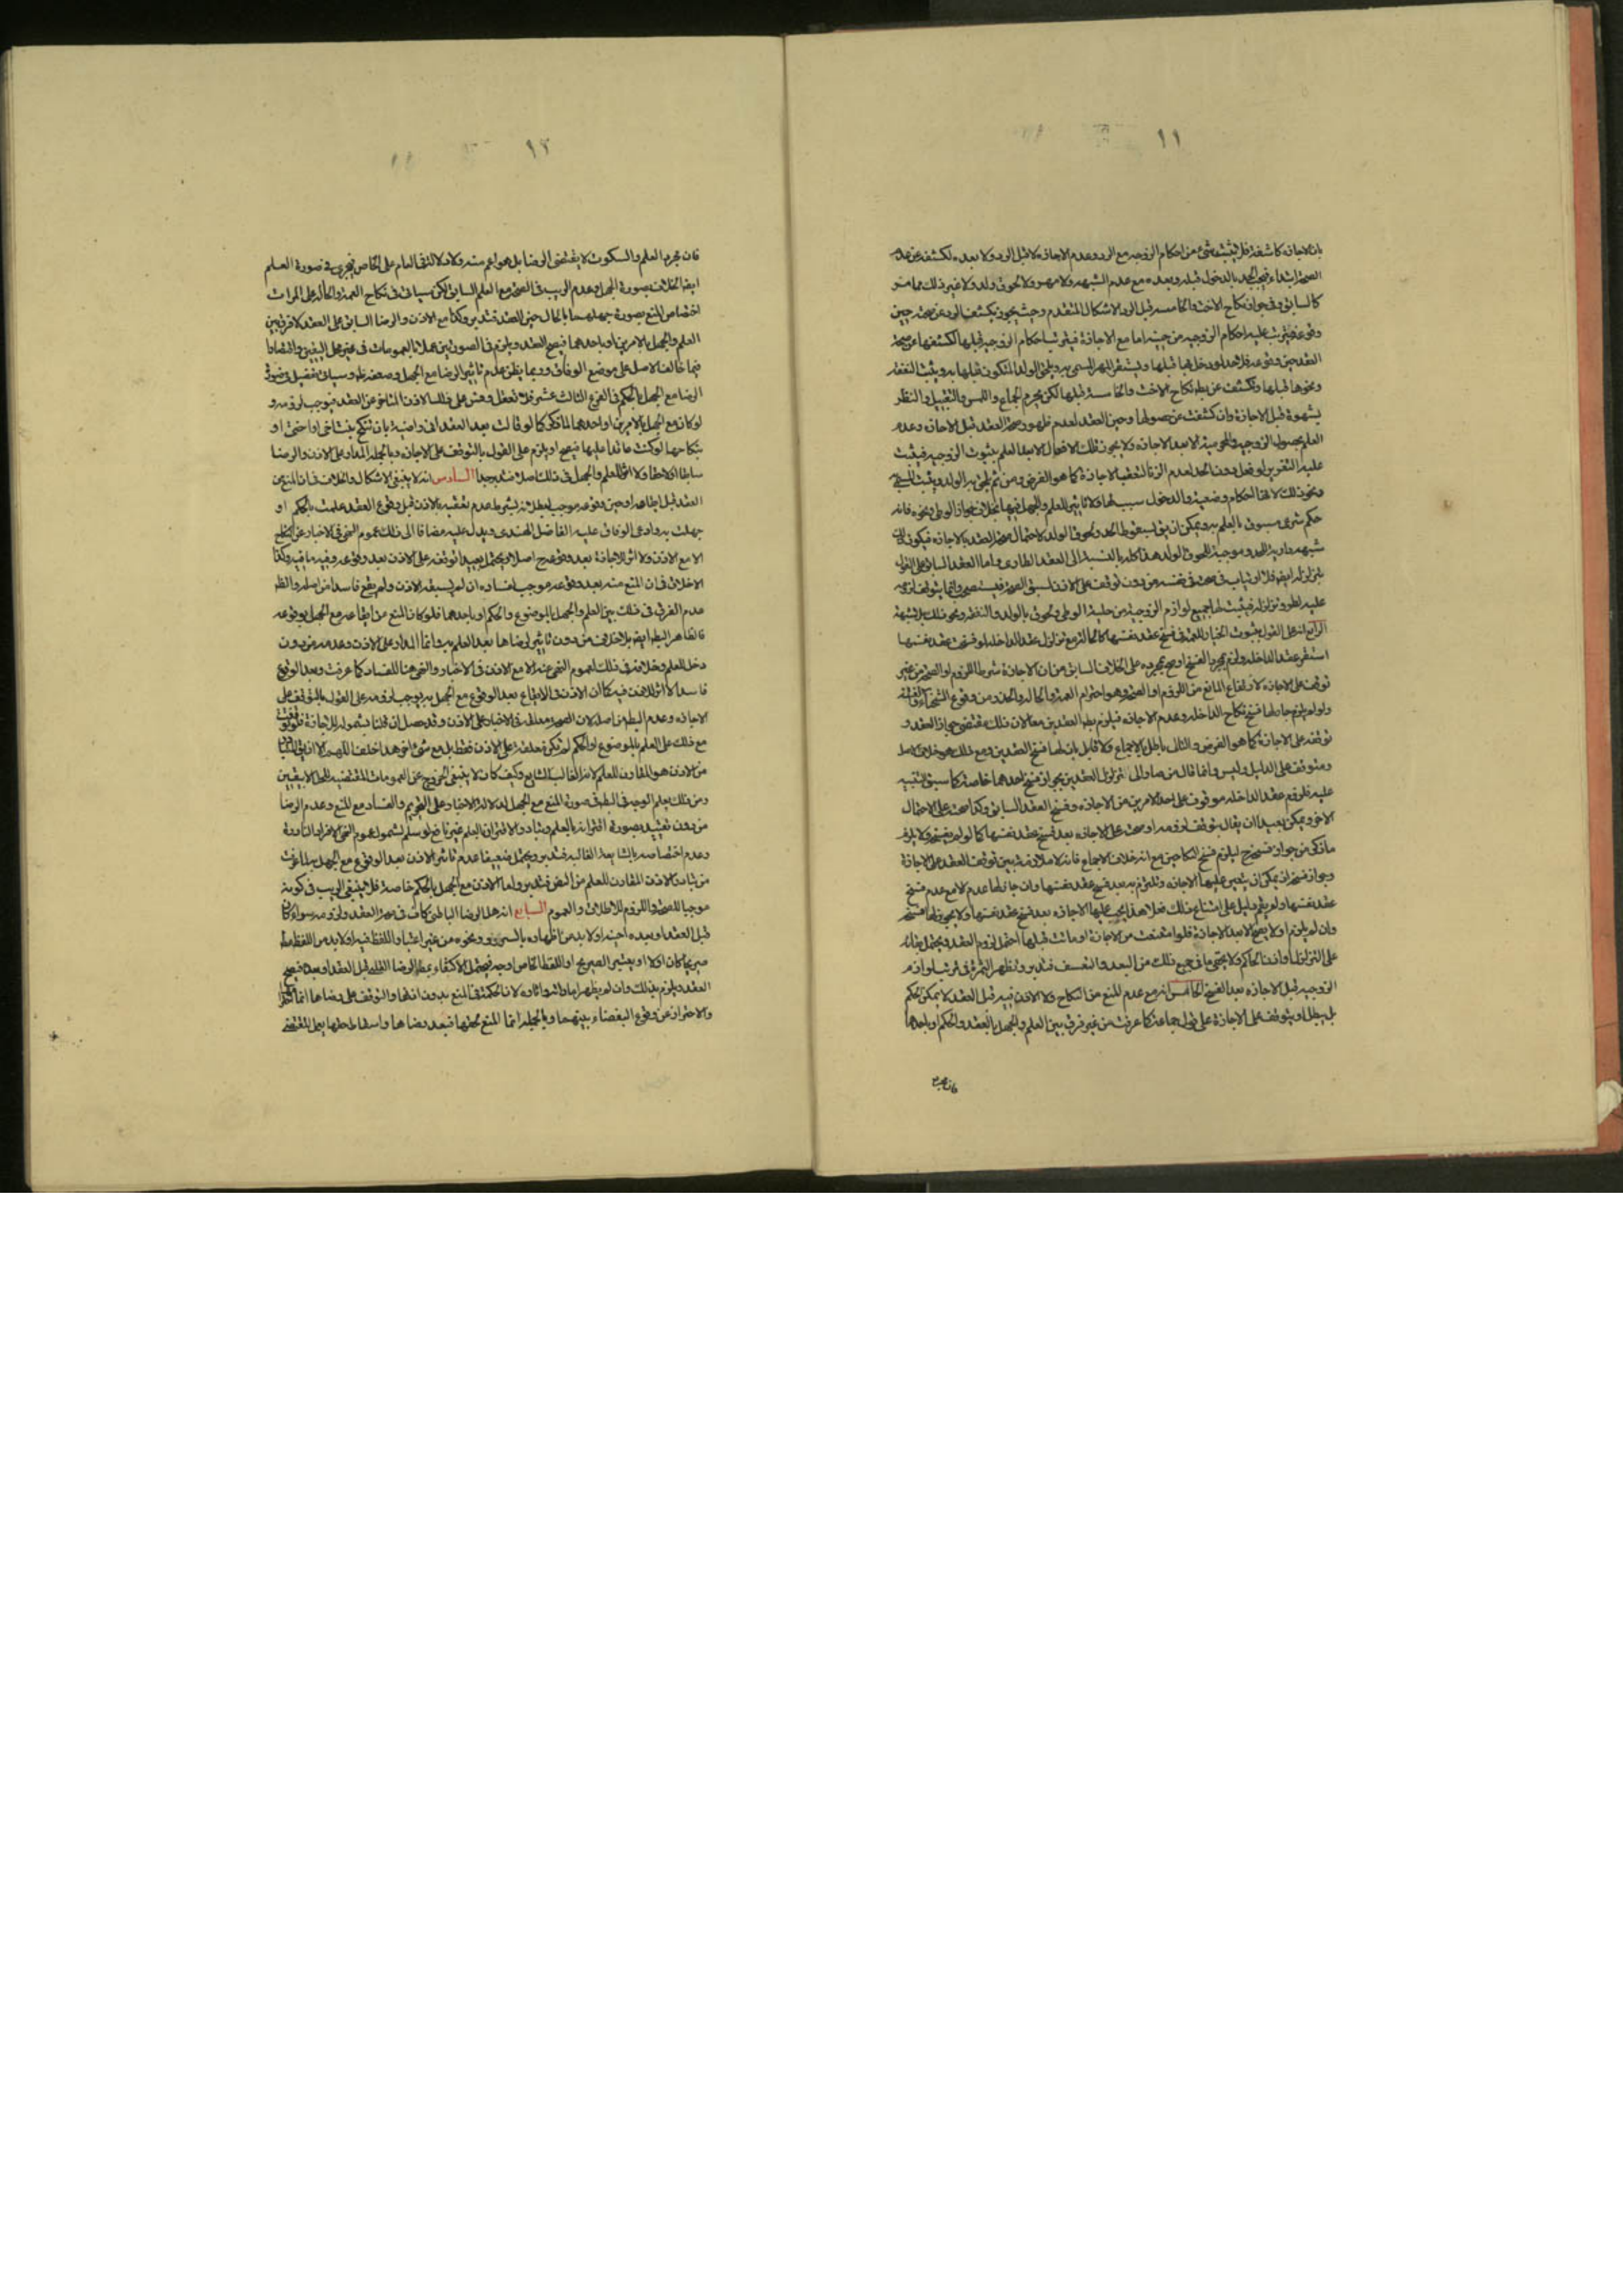 ١١
بان الاجازه كاشفة فلا يثبت شئ من احكام الزوجيه مع الرد وعدم الاجازه لا قبل الرد ولا بعده لكشفه عن عدم
الصحة ابتداء فيجب الحد بالدخول قبله وبعده مع عدم الشبهه ولا مهر ولا لحوق ولد ولا غير ذلك مما هو
كالسابق وفي جواز نكاح الاخت والخامسه قبل الرد الاشكال المتقدم وحيث يجوز يكشف الرد عن صحته حين
وقوعه فيترتب عليه احكام الزوجيه من حينه اما مع الاجازة فيترتب احكام الزوجيه قبلها لكشفها عن صحة
العقد حين وقوعه فلا حد لو دخل بها قبلها ويستقر المهر المسمى به ويلحق الولد المتكون قبلها به ويثبت النفقه
ونحوها قبلها وتكشف عن بطلان نكاح الاخت والخامسة قبلها لكن يحرم الجماع واللمس والتقبيل والنظر
بشهوة قبل الاجازة وان كشفت عن حصولها وحين العقد لعدم ظهور صحة العقد قبل الاجازه وعدم
العلم بحصول الزوجيه والمحرميه الا بعد الاجازه ولا يجوز تلك الافعال الا بعد العلم بثبوت الزوجيه فيثبت
عليه التعزير لو فعل دون الحد لعدم الزنا لتعقب الاجازة كما هو الفرض ومن ثم يلحق به الولد ويثبت المسمى
ونحو ذلك لانها احكام وضعيه والدخول سبب لها فلا تاثير للعلم والجهل فيها بخلاف جواز الوطى ونحوه فانه
حكم شرعى مسبوق بالعلم به ويمكن ان يق بسقوط الحد ولحوق الولد لاحتمال صحة العقد بالاجازه فيكون
شبهه دارئة للحد وموجبة للحوق الولد هذا كله بالنسبة الى العقد الطارى واما العقد السابق على القول
بتزلزله ايضا فلا ارتياب في صحته في نفسه من دون توقف على الاذن لسبق الصحة فيستصحب وانما يتوقف لزومه
عليه لطرو تزلزله فيثبت لها جميع لوازم الزوجية من حلية الوطى ولحوق الولد والنفقه ونحو ذلك بلا شبهة
الرابع انه على القول بثبوت الخيار للعمة في فسخ عقد نفسها كالخالة مع تزلزل عقد الداخله لو فسخت عقد نفسها
استقر عقد الداخله ولزم بمجرد الفسخ او صح بمجرده على الخلاف السابق من ان الاجازة شرط اللزوم او الصحة من غير
توقف على الاجازه لارتفاع المانع من اللزوم او الصحة وهو احترام العمة والخالة والحذر من وقوع الشحناء
ولو لم يلزم جاز لها فسخ نكاح الداخله وعدم الاجازه فيلزم بطلان العقدين معا لان ذلك مقتضى جواز العقد و
توقفه على الاجازة كما هو الفرض والتالى باطل بالاجماع ولا قايل بان لها فسخ العقدين ومع ذلك هو خلاف الاصل
ومتوقف على الدليل وليس وانما قال من صار الى تزلزل العقدين بجواز فسخ احدهما خاصة كما سبق التنبيه
عليه فلزوم عقد الداخله موقوف على احد الامرين من الاجازه وفسخ العقد السابق وكذا صحته على الاحتمال
الاخر ويمكن بعيدا ان يقال بتوقف لزومه او صحته على الاجازه بعد فسخ عقد نفسها كما لو لم يفسخ ولا يلزم
ما ذكر من جواز فسخه ليلزم فسخ النكاحين مع انه خلاف الاجماع فانه لا ملازمة بين توقف العقد على الاجازة
وجواز فسخه اذ يمكن ان يتعين عليها الاجازه وتلزم به بعد فسخ عقد نفسها وان جاز لها عدم الاجازة مع عدم فسخ
عقد نفسها ولم يقم دليل على امتناع ذلك فعلا هذا يجب عليها الاجازه بعد فسخ عقد نفسها ولا يجوز لها فسخه
وان لم يلزم اولا يصح الا بعد الاجازة فلو امتنعت من الاجازة او ماتت قبلها احتمل لزوم العقد ويحتمل بقائه
على التزلزل او اذن الحاكم ولا يخفى ما في جميع ذلك من البعد والتعسف فتدبر وتظهر الثمرة في ترتب لوازم
الزوجيه قبل الاجازه بعد الفسخ الخامس انه مع عدم المنع من النكاح ولا الاذن فيه قبل العقد لا يمكن الحكم
بل يبطل او يتوقف على الاجازة على قول جماعة كما عرفت من غير فرق بين العلم والجهل بالعقد والحكم او باحدهما
فان مجرد
١٢
فان مجرد العلم والسكوت لا يقتضى الرضا بل هو اعم منه ولا دلالة في العام على الخاص فيجرى في صورة العلم
ايضا الخلاف بصورة الجهل وعدم الريب في الصحة مع العلم السابق لكن سياتى في نكاح العمة والخالة على المرات
اختصاص المنع بصورة جهلهما بالحال حين العقد فتدبر وكذا مع الاذن والرضا السابق على العقد لا فرق بين
العلم والجهل بالامرين او باحدهما فيصح العقد ويلزم في الصورتين عملا بالعمومات في غير محل اليقين واقتصارا
فيما خالف الاصل على موضع الوفاق وربما يظن عدم تاثير الرضا مع الجهل وضعفه ظاهر وسياتى تفصيل في صورة
الرضا مع الجهل بالحكم في الفرع الثالث عشر فلا تغفل وقس على ذلك الاذن المتاخر عن العقد فيوجب لزومه و
لو كان مع الجهل بالامرين او احدهما المذكور كما لو قالت بعد العقد انى راضية بان تنكح بنت اخى او اختى او
بنكاحها لو كنت عاقدا عليها فيصح او يلزم على القول بالتوقف على الاجازه وبالجمله المدار على الاذن والرضا
سابقا او لاحقا ولا اثر للعلم والجهل في ذلك اصلا فتدبر جدا السادس انه لا ينبغى الاشكال والخلاف في ان المنع من
العقد قبل ايقاعه او حين وقوعه موجب لبطلانه بشرط عدم تعقبه بالاذن قبل وقوع العقد علمت بالحكم او
جهلت به وادعى الوفاق عليه الفاضل الهندى ويدل عليه مضافا الى ذلك عموم النهى في الاخبار عن النكاح
الا مع الاذن ولا اثر للاجازة بعد وقوعه ح اصلا ويحتمل بعيدا توقفه على الاذن بعد وقوعه وفيه ما فيه وكذا
لا خلاف في ان المنع منه بعد وقوعه موجب لفساده ان لم يسبقه الاذن ولم يقع فاسدا من اصله والظاهر
عدم الفرق في ذلك بين العلم والجهل بالموضوع والحكم او باحدهما فلو كان المنع من ايقاعه مع الجهل بوقوعه
فالظاهر البطلان ايضا بلا خلاف من دون تاثير لرضاها بعد العلم به وانما المدار على الاذن وعدمه من دون
دخل للعلم وخلافه في ذلك لعموم النهى عنه الا مع الاذن في الاخبار والنهى هنا للفساد كما عرفت وبعد الوقوع
فاسدا لا اثر للاذن فيه كما ان الاذن في الايقاع بعد الوقوع مع الجهل به يوجب لزومه على القول بالتوقف على
الاجازه وعدم البطلان اصلا لان الصحة معلقة في الاخبار على الاذن وقد حصل ان قلنا بشموله للاجازة فلو توقف
مع ذلك على العلم بالموضوع او الحكم لم تكن معلقة على الاذن فقط بل مع شئ اخر هذا خلف اللهم الا ان يق المتبادر
من الاذن هو المقارن للعلم لانه الغالب الشايع وكيف كان لا ينبغى الخروج عن العمومات المقتضيه للحل الا بيقين
ومن ذلك يعلم الوجه في البطلان في صورة المنع مع الجهل لدلالة الاخبار على التحريم والفساد مع المنع وعدم الرضا
من دون تقييد بصورة اقترانه بالعلم وتبادر الاقتران بالعلم غير نافع لو سلم لشمول عموم النهى الافراد النادرة
وعدم اختصاصه بالشايعة الغالبه فتدبر ويحتمل ضعيفا عدم تاثير الاذن بعد الوقوع مع الجهل به لما عرفت
من تبادر الاذن المقارن للعلم من النص فتدبر واما الاذن مع الجهل بالحكم خاصة فلا ينبغى الريب في كونه
موجبا للصحة واللزوم للاطلاق والعموم السابع انه هل الرضا الباطنى كاف في صحة العقد ولزومه سواء كان
قبل العقد او بعده او حينه او لا بد من اظهاره بالسرور ونحوه من غير اعتبار اللفظ فيه او لا بد من اللفظ مطلقا
صريحا كان او لا او يعتبر الصريح او اللفظ الخاص اوجه فيحتمل الاكتفاء بمطلق الرضا القلبى قبل العقد او بعده فيصح
العقد ويلزم بذلك وان لم يظهر اماراته واثاره لان الحكمة في المنع بدون اذنها والتوقف على رضاها انما
والاحتراز عن وقوع البغضاء بينهما وبالجمله انما المنع لحقها فبعد رضاها واسقاط حقها يعمل المقتضى